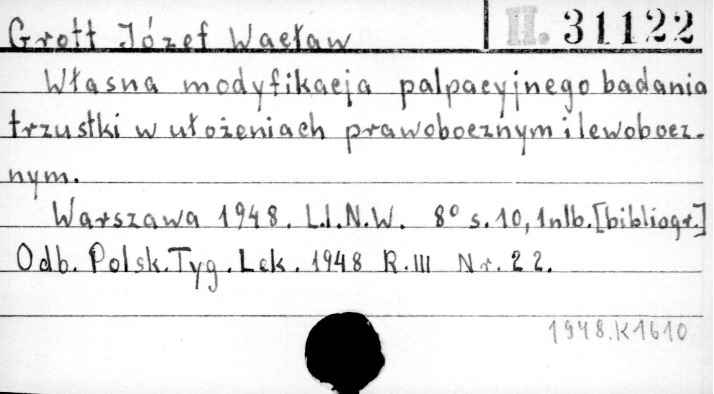 Grott Józef Wacław II. 31122
Własna modyfikacja palpacyjnego badania
trzustki w ułożeniach prawobocznym i lewobocz-
nym.
Warszawa 1948. L.I.N.W. 8° s. 10, 1 nlb. [bibliogr.]
Odb. Polsk. Tyg. Lek. 1948 R. III Nr. 22.
1948.K1610